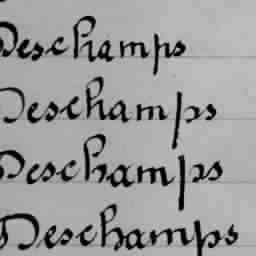 Deschamps
Deschamps
Deschamps
Deschamps